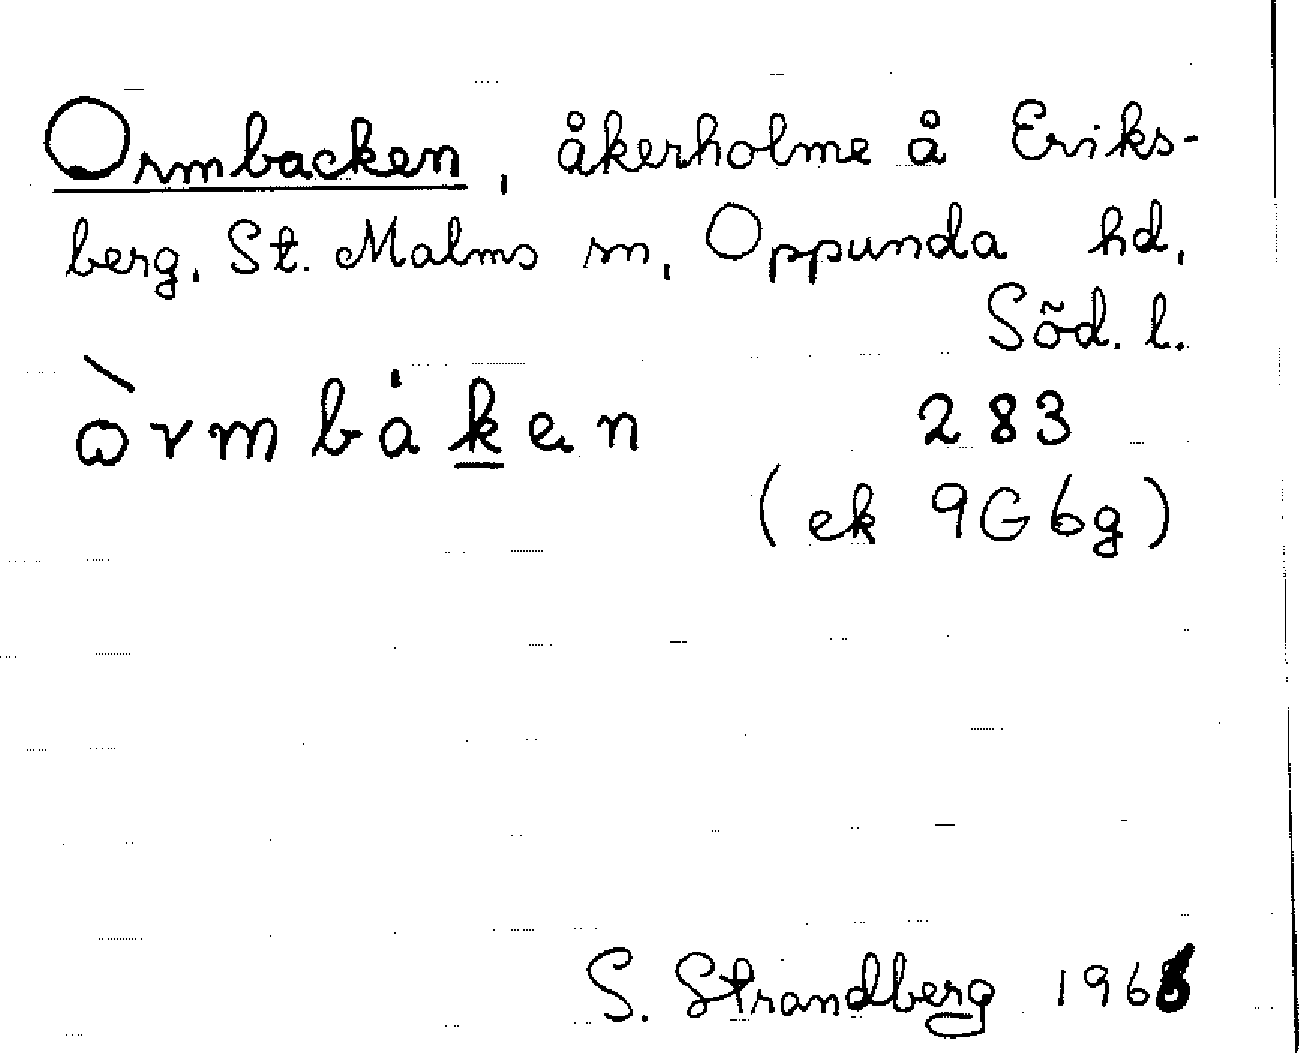 Ormbacken, åkerholme å Eriks-
berg, St. Malms sn, Oppunda hd,
Söd. l.
òrmbȧk̲en 283
(ek 9G6g)
S. Strandberg 1966